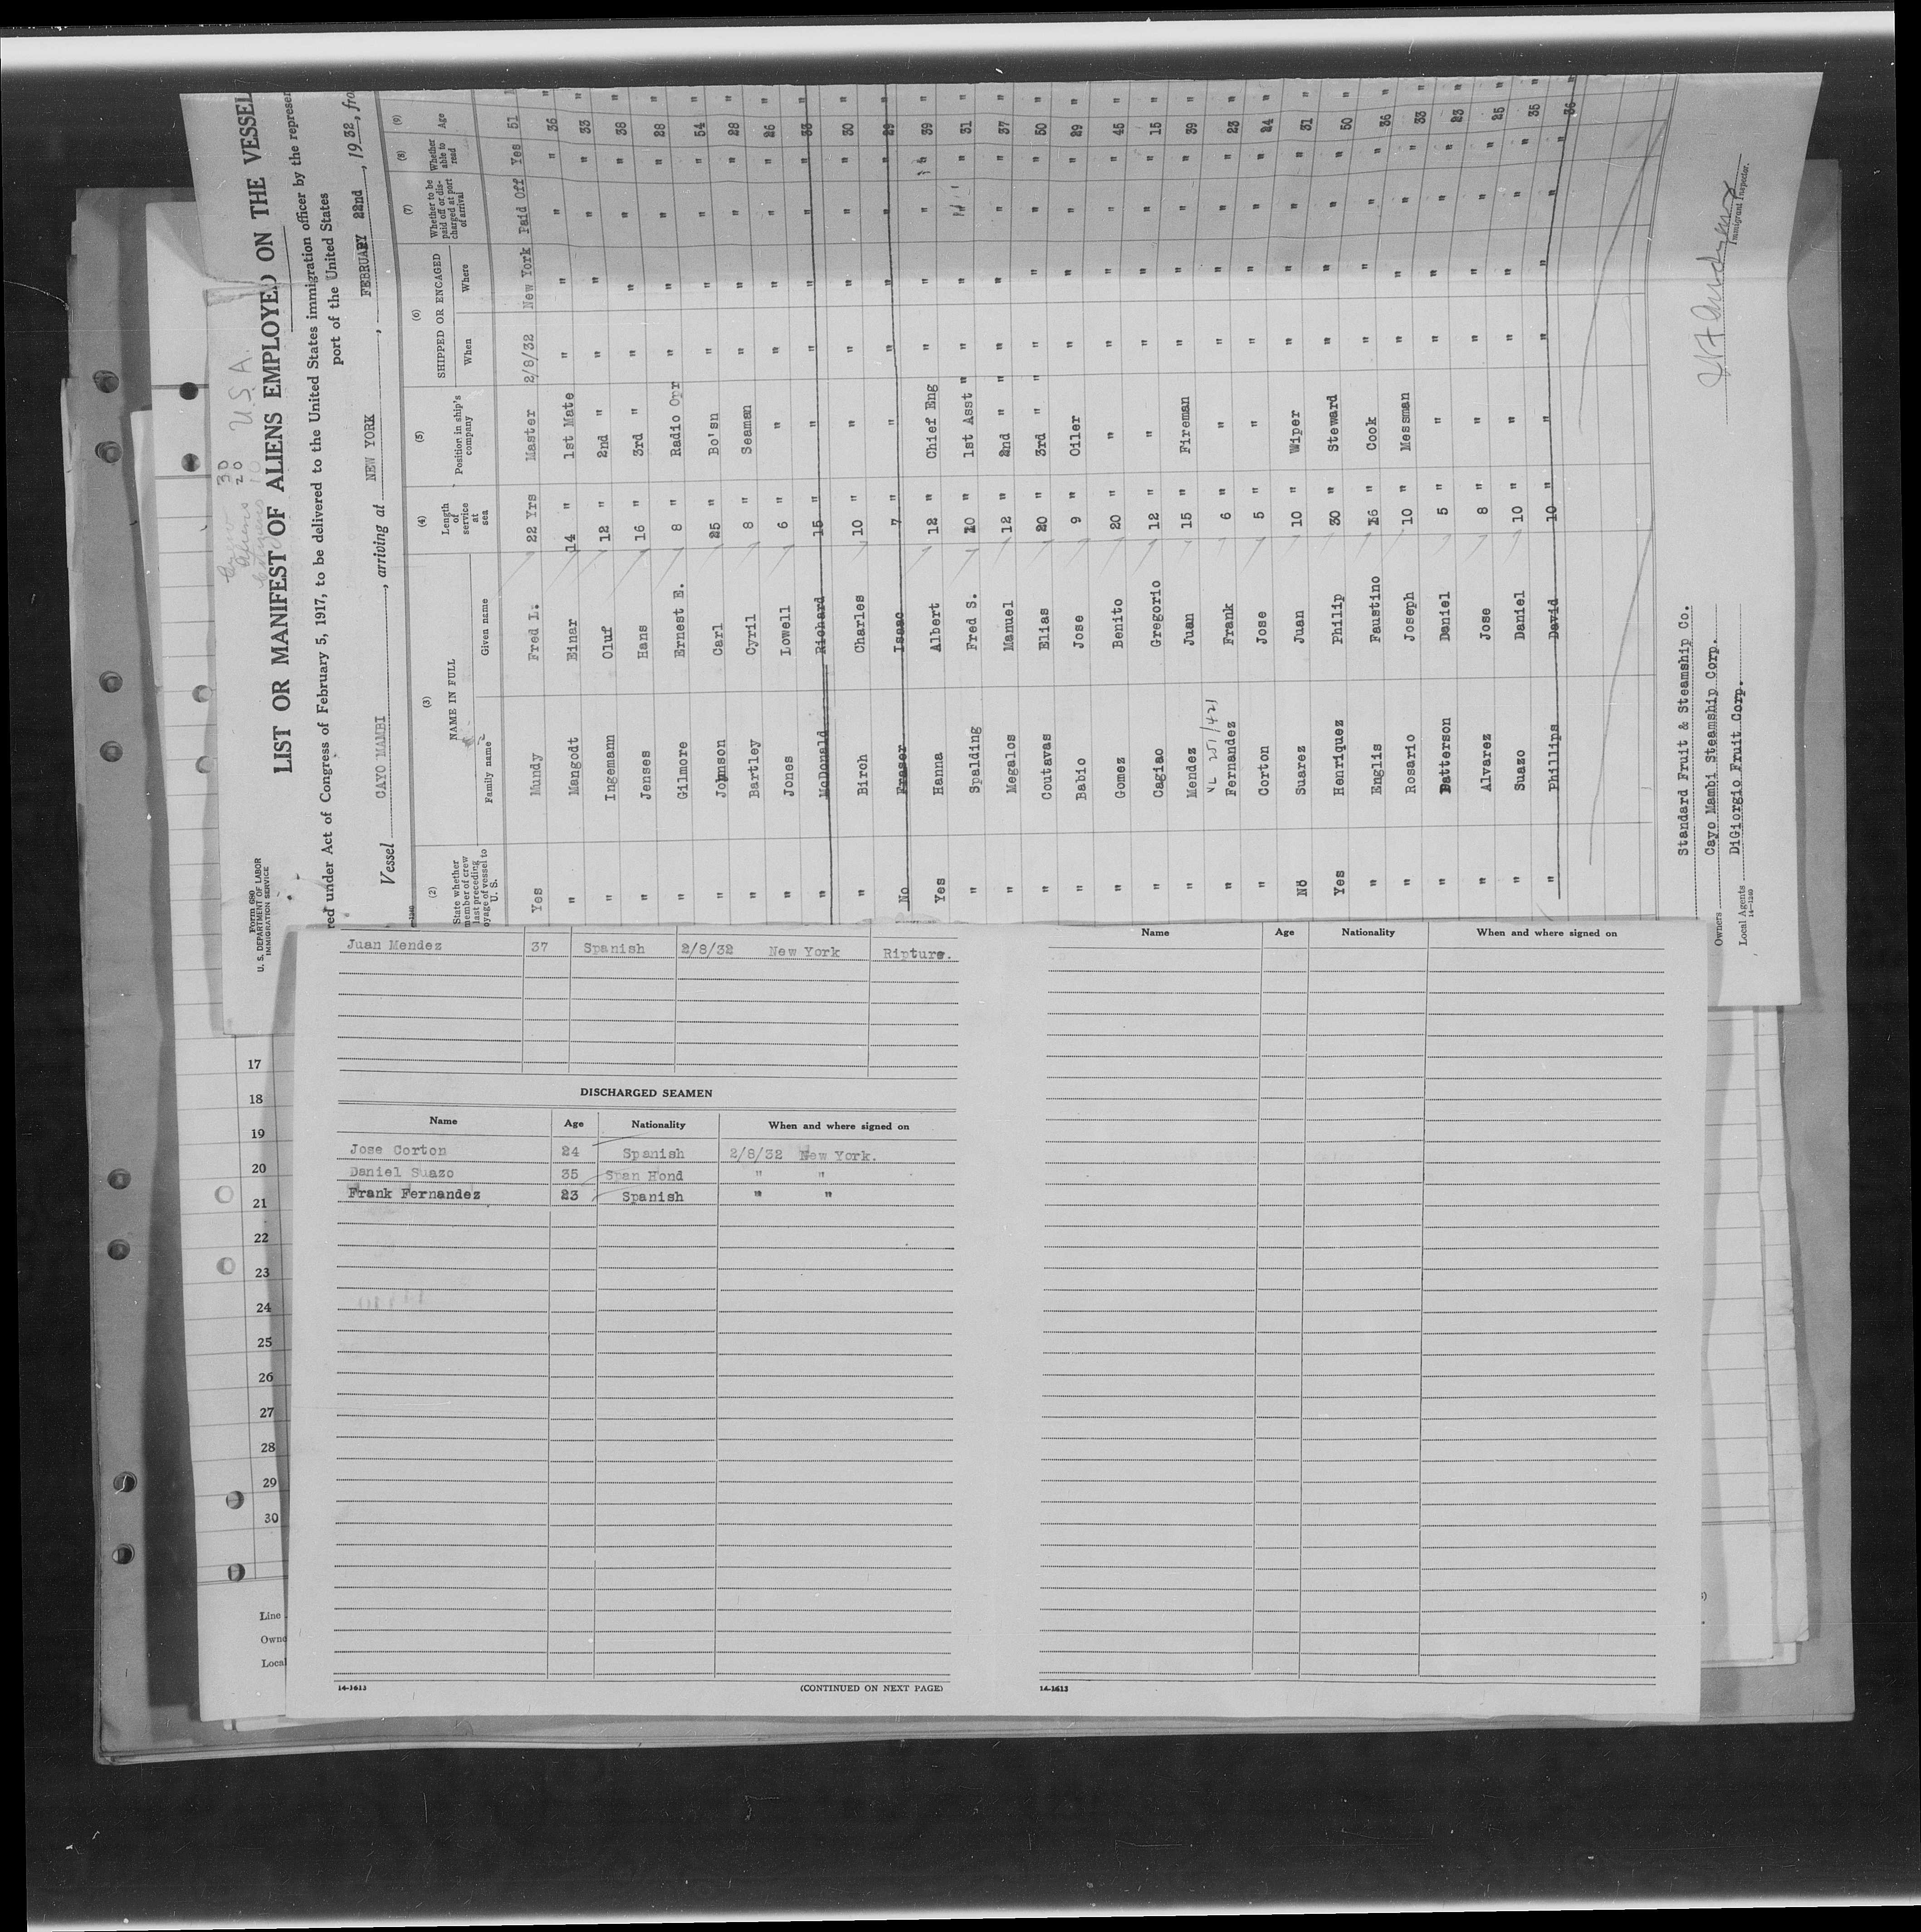 Crew 30 U.S.A.
Aliens 20
Citizens 10
Form 680
U. S. DEPARTMENT OF LABOR
IMMIGRATION SERVICE
LIST OR MANIFEST OF ALIENS EMPLOYED ON THE VESSEL
red under Act of Congress of February 5, 1917, to be delivered to the United States immigration officer by the represen
port of the United States
Vessel CAYO MAMBI, arriving at NEW YORK, FEBRUARY 22nd, 1932, fro
(2) (3) (4) (5) (6) (7) (8) (9)
State whether member of crew last preceding voyage of vessel to U. S. NAME IN FULL Family name Given name Length of service at sea Position in ship's company SHIPPED OR ENGAGED When Where Whether to be paid off or discharged at port of arrival Whether able to read Age
Yes Mundy Fred L. 22 Yrs Master 2/8/32 New York Paid Off Yes 51
" Mangodt Einar 14 " 1st Mate " " " " 36 "
" Ingemann Oluf 12 " 2nd " " " " " 33 "
" Jenses Hans 16 " 3rd " " " " " 38 "
" Gilmore Ernest E. 8 " Radio Opr " " " " 28 "
" Johnson Carl 25 " Bo'sn " " " " 54 "
" Bartley Cyril 8 " Seaman " " " " 28 "
" Jones Lowell 6 " " " " " " 26 "
" McDonald Richard 15 " " " " " " 33 "
" Birch Charles 10 " " " " " " 30 "
No Fraser Isaac 7 " " " " " " 29 "
Yes Hanna Albert 12 " Chief Eng " " " " 39 "
" Spalding Fred S. 10 " 1st Asst " " " " " 31 "
" Megalos Manuel 12 " 2nd " " " " " " 37 "
" Coutavas Elias 20 " 3rd " " " " " " 50 "
" Babio Jose 9 " Oiler " " " " 29 "
" Gomez Benito 20 " " " " " " 45 "
" Cagiao Gregorio 12 " " " " " " 15 "
" Mendez Juan 15 " Fireman " " " " 39 "
NL 251/421
" Fernandez Frank 6 " " " " " " 23 "
" Corton Jose 5 " " " " " " 24 "
No Suarez Juan 10 " Wiper " " " " 31 "
Yes Henriquez Philip 30 " Steward " " " " 50 "
" Englis Faustino 16 " Cook " " " " 36 "
" Rosario Joseph 10 " Messman " " " " 33 "
" Patterson Daniel 5 " " " " " " 23 "
" Alvarez Jose 8 " " " " " " 25 "
" Suazo Daniel 10 " " " " " " 35 "
" Phillips David 10 " " " " " " 36 "
Standard Fruit & Steamship Co.
Owners Cayo Mambi Steamship Corp.
Local Agents DiGiorgio Fruit Corp.
14-1240
Immigrant Inspector.
Juan Mendez 37 Spanish 2/8/32 New York Ripture.
DISCHARGED SEAMEN
Name Age Nationality When and where signed on
Jose Corton 24 Spanish 2/8/32 New York.
Daniel Suazo 35 Span Hond " "
Frank Fernandez 23 Spanish " "
14-1613 (CONTINUED ON NEXT PAGE)
Name Age Nationality When and where signed on
14-1613
17
18
19
20
21
22
23
24
25
26
27
28
29
30
Line
Owne
Local